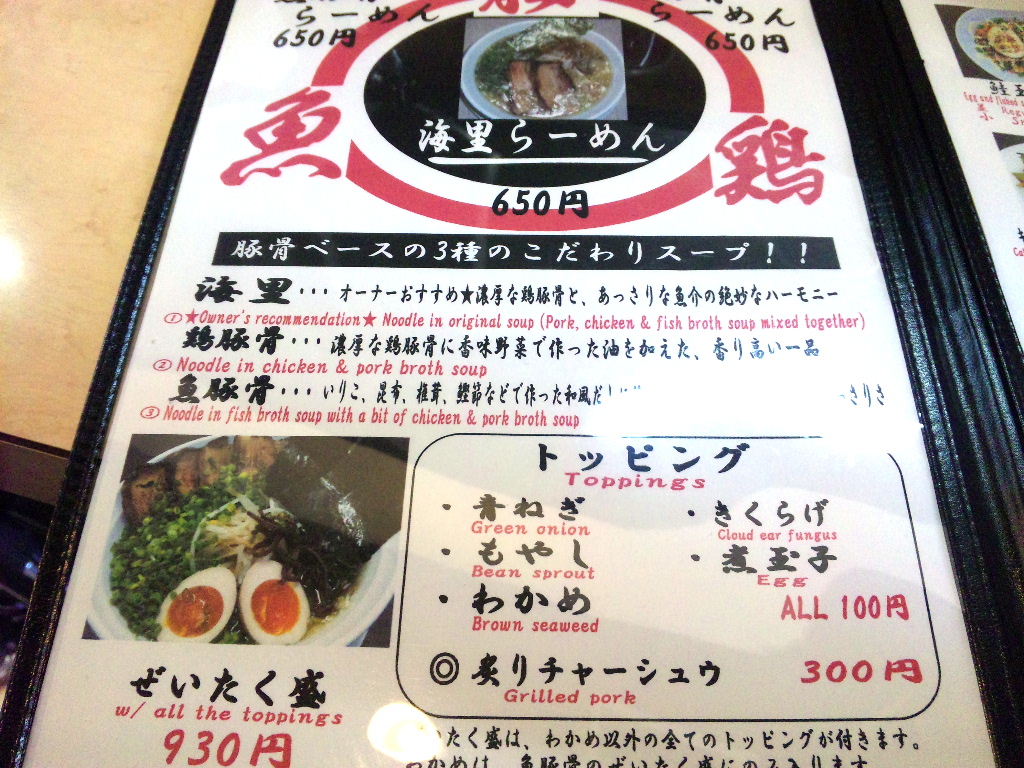 らーめん
650円
らーめん
650円
魚
海里らーめん
鶏
650円
豚骨ベースの3種のこだわりスープ！！
海里・・・オーナーおすすめ★濃厚な鶏豚骨と、あっさりな魚介の絶妙なハーモニー
①★Owner's recommendation★ Noodle in original soup (Pork, chicken & fish broth soup mixed together)
鶏豚骨・・・濃厚な鶏豚骨に香味野菜で作った油を加えた、香り高い一品
②Noodle in chicken & pork broth soup
魚豚骨・・・いりこ、昆布、椎茸、鰹節などで作った和風だし
③Noodle in fish broth soup with a bit of chicken & pork broth soup
トッピング
Toppings
・青ねぎ
Green onion
・きくらげ
Cloud ear fungus
・もやし
Bean sprout
・煮玉子
Egg
・わかめ
Brown seaweed
ALL 100円
◎炙りチャーシュウ 300円
Grilled pork
ぜいたく盛
w/ all the toppings
930円
いたく盛は、わかめ以外の全てのトッピングが付きます。
かめは、魚豚骨のぜいたく盛にのみ入ります